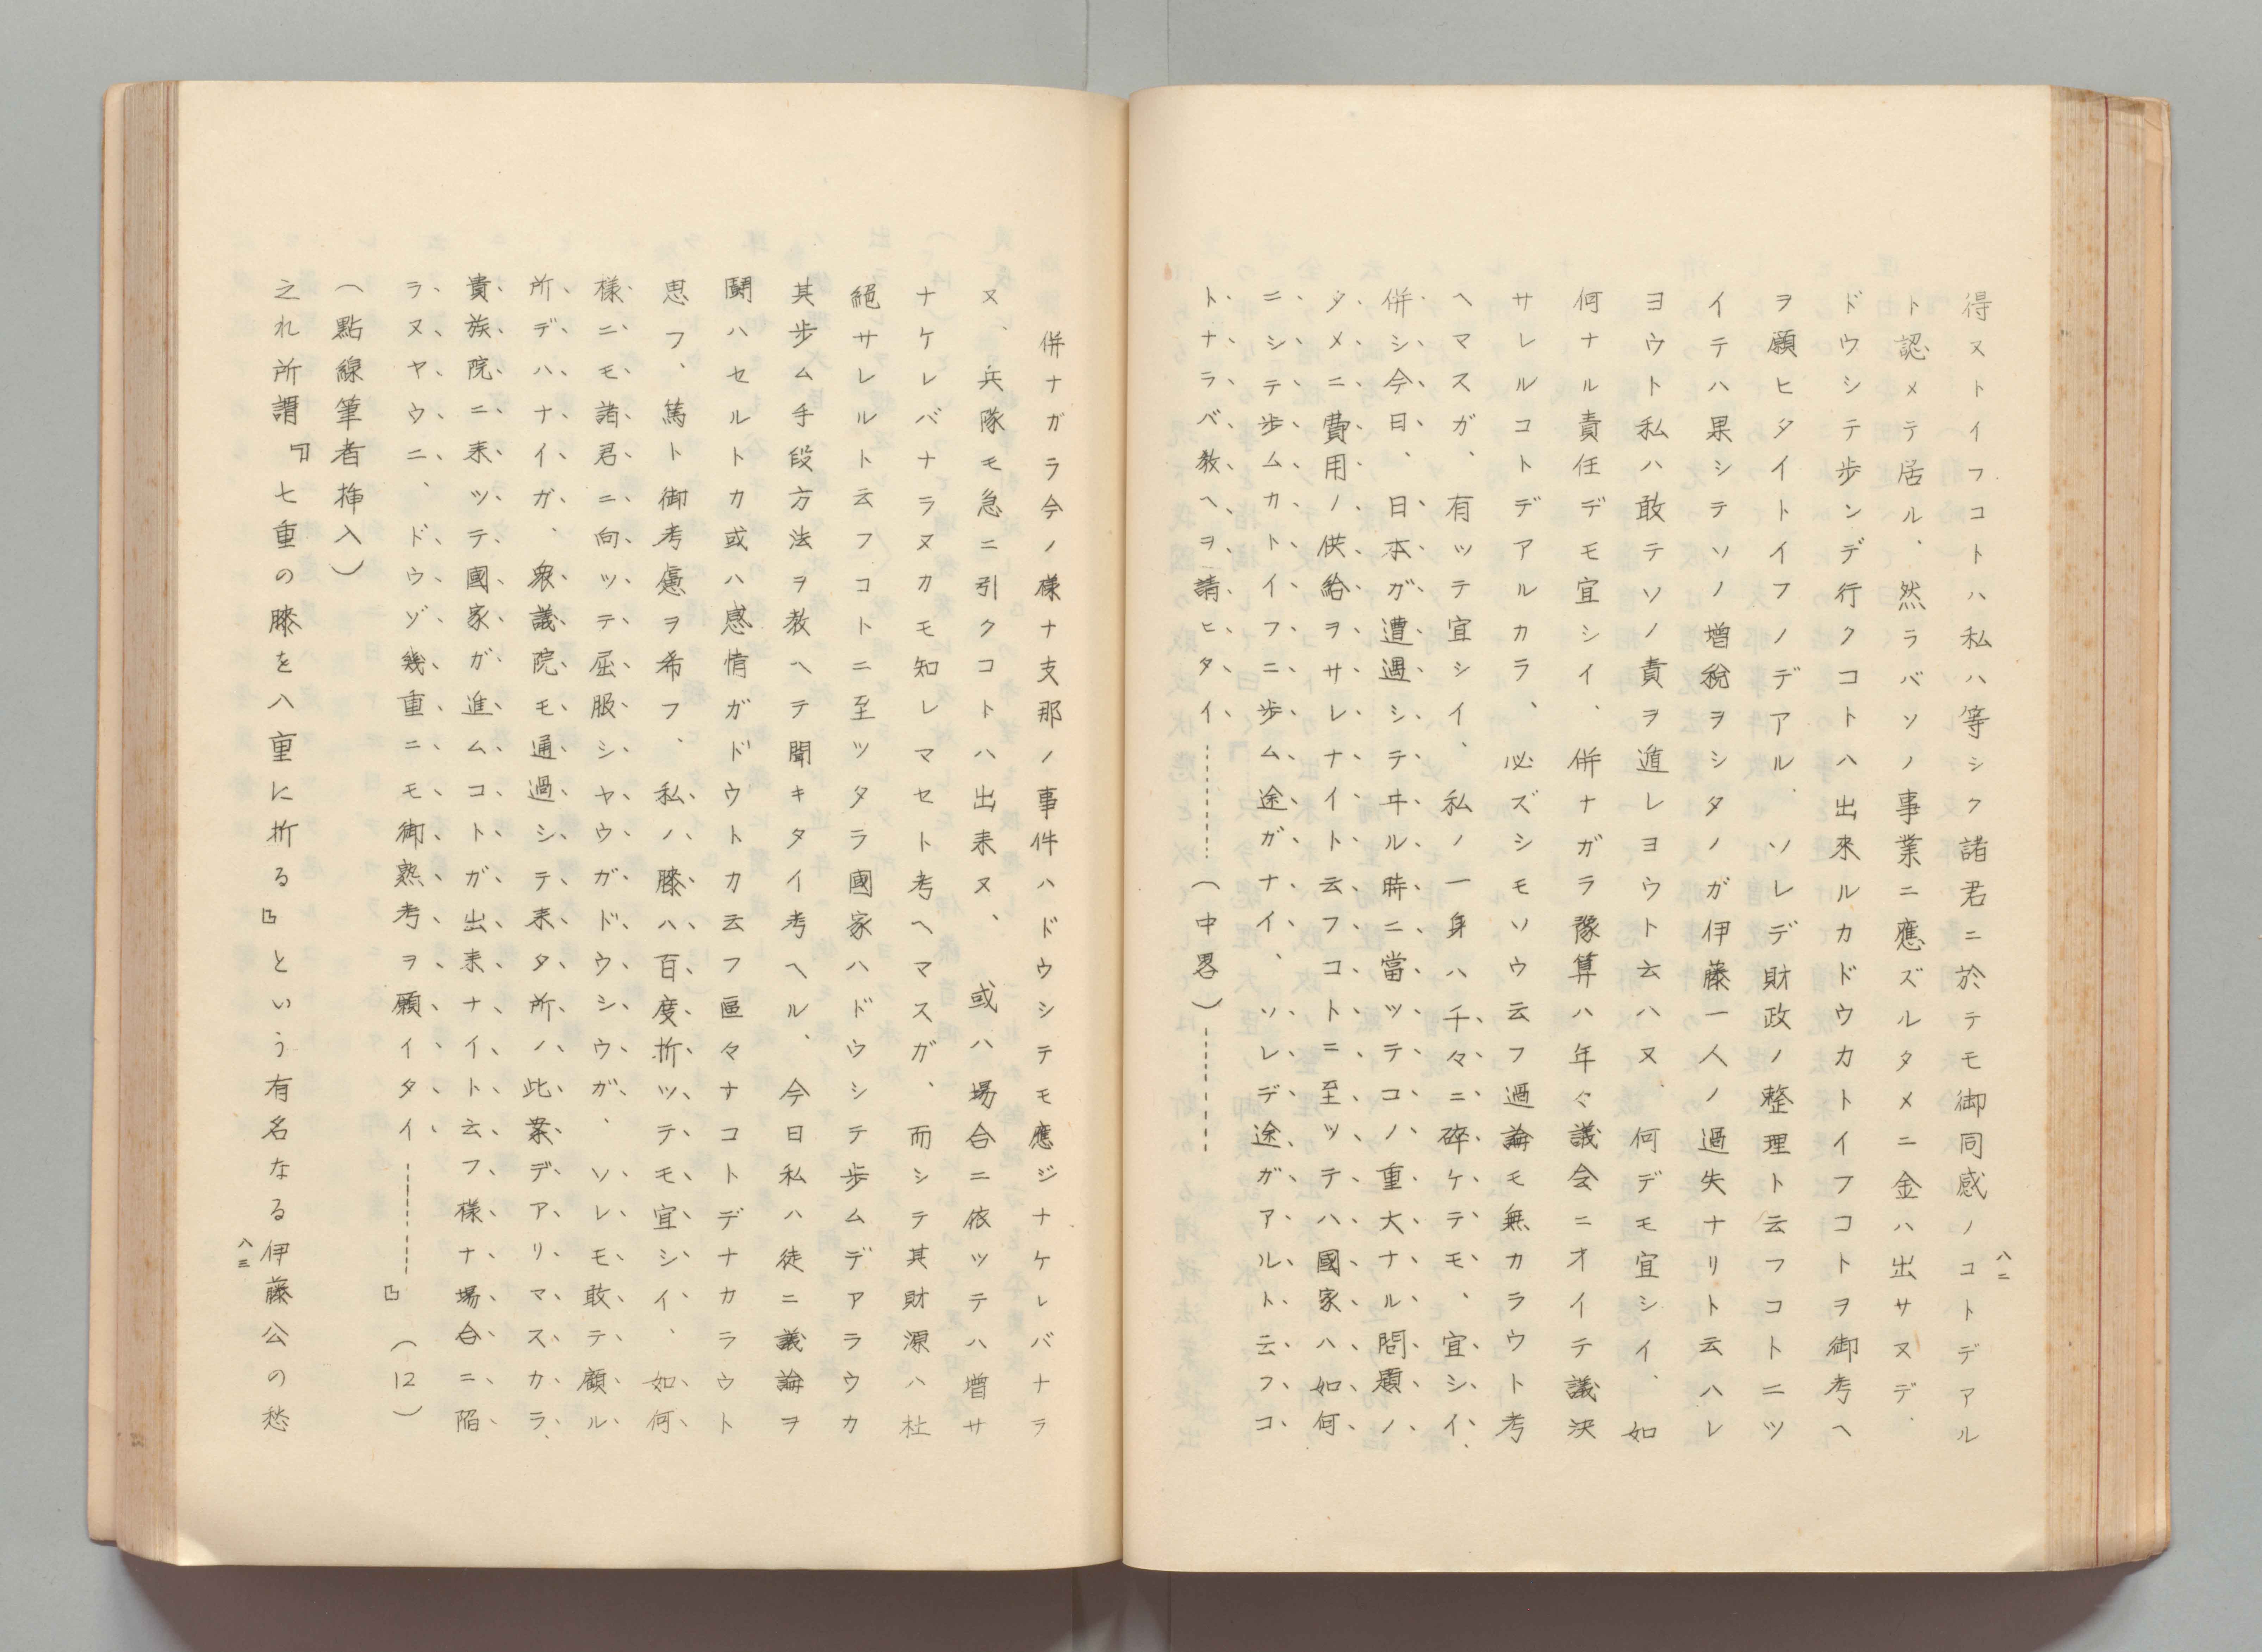 八二
得ヌトイフコトハ私ハ等シク諸君ニ於テモ御同感ノコトデアル
ト認メテ居ル、然ラバソノ事業ニ應ズルタメニ金ハ出サヌデ、
ドウシテ歩ンデ行クコトハ出來ルカドウカトイフコトヲ御考ヘ
ヲ願ヒタイトイフノデアル、ソレデ財政ノ整理ト云フコトニツ
イテハ果シテソノ増税ヲシタノガ伊藤一人ノ過失ナリト云ハレ
ヨウト私ハ敢テソノ責ヲ遁レヨウト云ハヌ、何デモ宜シイ、如
何ナル責任デモ宜シイ、併ナガラ豫算ハ年々議会ニオイテ議決
サレルコトデアルカラ、必ズシモソウ云フ過論モ無カラウト考
ヘマスガ、有ッテ宜シイ、私ノ一身ハ千々ニ碎ケテモ、宜シイ、
併シ今日、日本ガ遭遇シテヰル時ニ當ッテコノ重大ナル問題ノ
タメニ費用ノ供給ヲサレナイト云フコトニ至ッテハ國家ハ如何
ニシテ歩ムカトイフニ歩ム途ガナイ、ソレデ途ガアルト云フコ
トナラバ教ヘヲ請ヒタイ………（中畧）………
併ナガラ今ノ様ナ支那ノ事件ハドウシテモ應ジナケレバナラ
ヌ、兵隊モ急ニ引クコトハ出来ヌ、或ハ場合ニ依ッテハ増サ
ナケレバナラヌカモ知レマセト考ヘマスガ、而シテ其財源ハ杜
絕サレルト云フコトニ至ツタラ國家ハドウシテ歩ムデアラウカ
其歩ム手段方法ヲ教ヘテ聞キタイ考ヘル、今日私ハ徒ニ議論ヲ
鬪ハセルトカ或ハ感情ガドウトカ云フ區々ナコトデナカラウト
思フ、篤ト御考慮ヲ希フ、私ノ膝ハ百度折ッテモ宜シイ、如何
様ニモ諸君ニ向ッテ屈服シヤウガドウシウガ、ソレモ敢テ顧ル
所デハナイガ、衆議院モ通過シテ来タ所ノ此案デアリマスカラ、
貴族院ニ来ッテ國家ガ進ムコトガ出来ナイト云フ様ナ場合ニ陥
ラヌヤウニ、ドウゾ幾重ニモ御熟考ヲ願イタイ………』（12）
（點線筆者挿入）
之れ所謂『七重の膝を八重に折る』という有名なる伊藤公の愁
八三